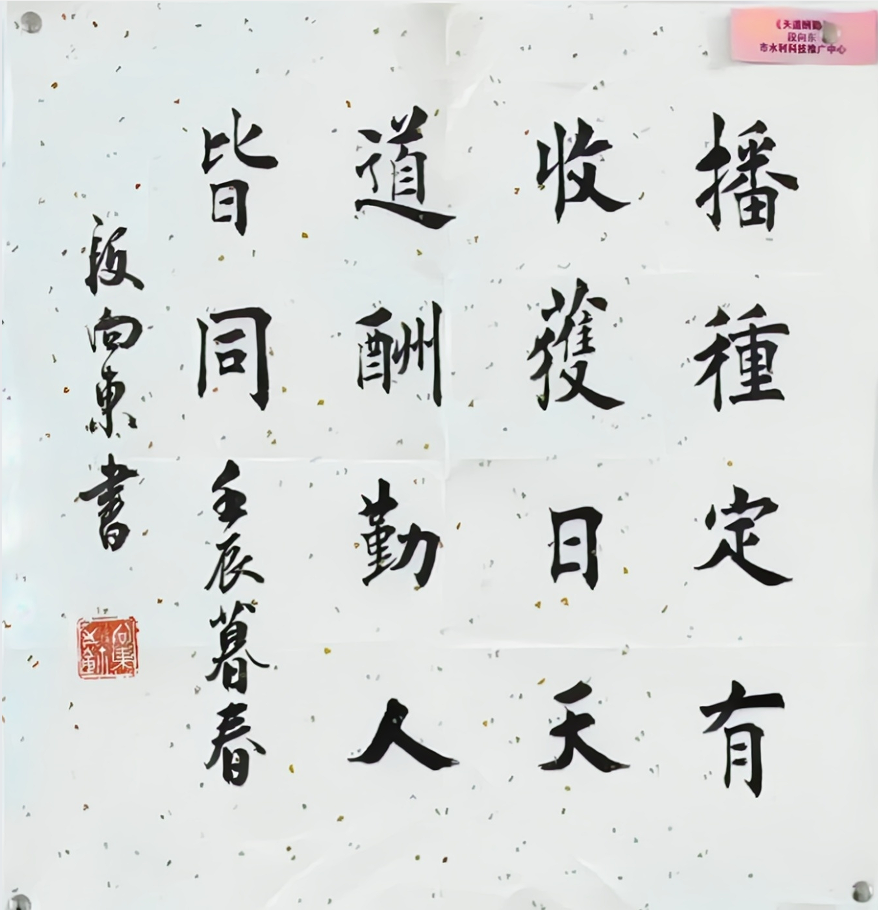 播種定有
收獲日天
道酬勤人
皆同壬辰暮春
段向东書
《天道酬勤》
段向东
市水利科技推广中心